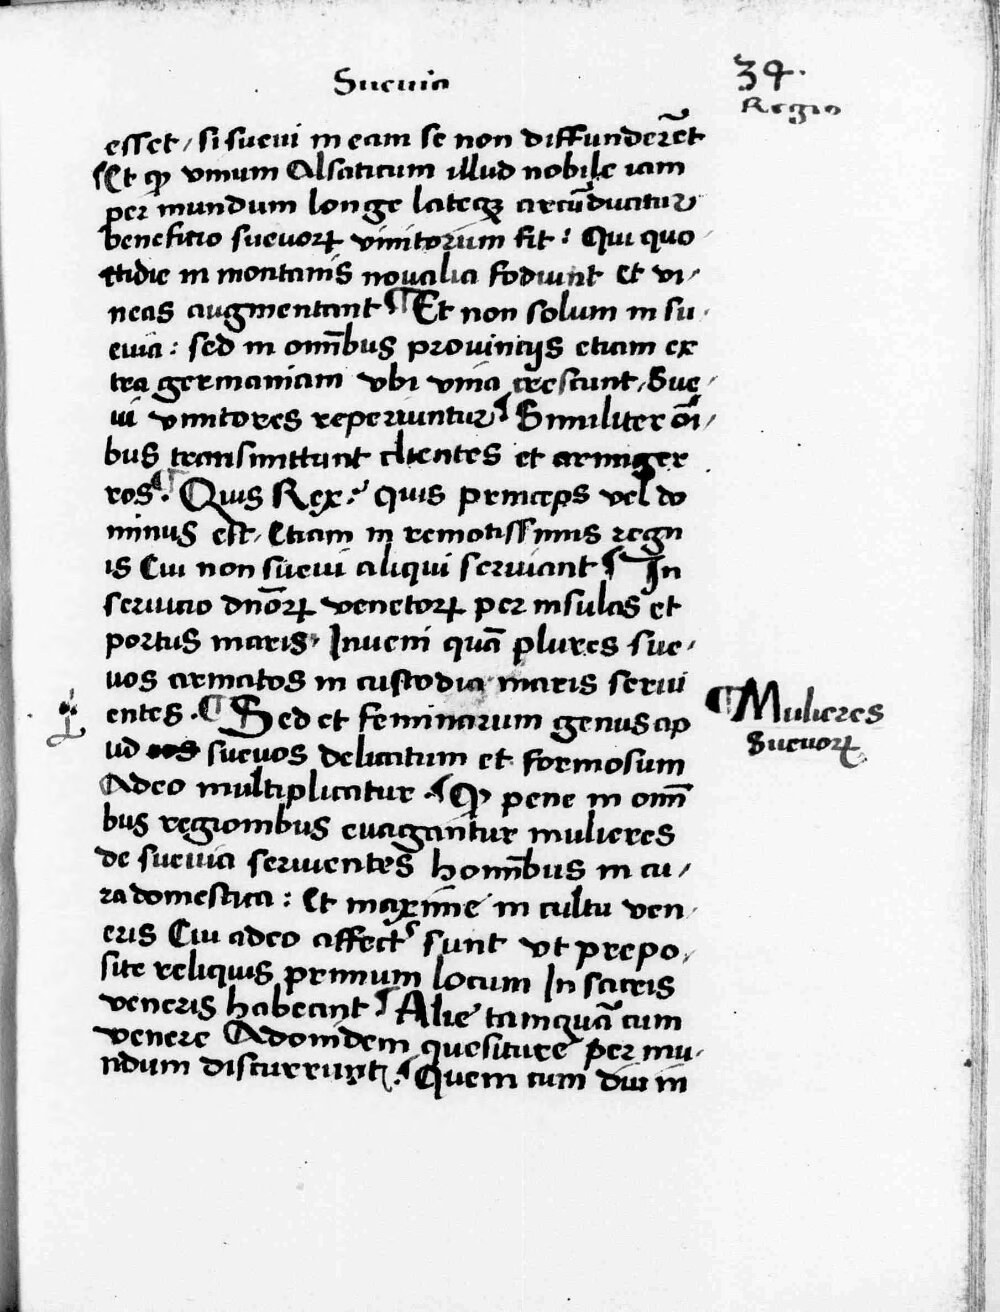 Sueuia
34.
Regio
esset / si sueui in eam se non diffunderēt
Et ꝙ vinum Alsaticum illud nobile iam
per mundum longe lateqꝫ circūducitur
beneficio sueuorꝝ vinitorum fit : Qui quo
ttidie in montanis noualia fodiunt et vi /
neas augmentant ¶ Et non solum in su /
euia : sed in om̄ibus prouincijs etiam ex
tra germaniam vbi vina crescunt / Sue /
ui vinitores reperiuntur ¶ Similiter oī /
bus transmittunt clientes et armiger
ros ¶ Quis Rex ? quis princeps vel do
minus est / Etiam in remotissimis regn
is Cui non sueui aliqui seruiant ¶ In
seruicio dn̄orꝝ venetorꝝ per insulas et
portus maris / Inueni quā plures sue /
uos armatos in custodia maris serui
entes . ¶ Sed et feminarum genus ap
ud sueuos delicatum et formosum
Adeo multiplicatur . ¶ Ꝙ pene in om̄i
bus regionibus euagantur mulieres
de sueuia seruientes hom̄ibus in cu /
ra domestica : Et maxime in cultu ven /
eris Cui adeo affectꝰ sunt vt prepo /
site reliquis primum locum In sacris
veneris habeant ¶ Alie tamquā cum
venere Adonidem quesiture per mu /
ndum discurrunt . ¶ Quem cum diu in
¶ Mulieres
Sueuorꝝ